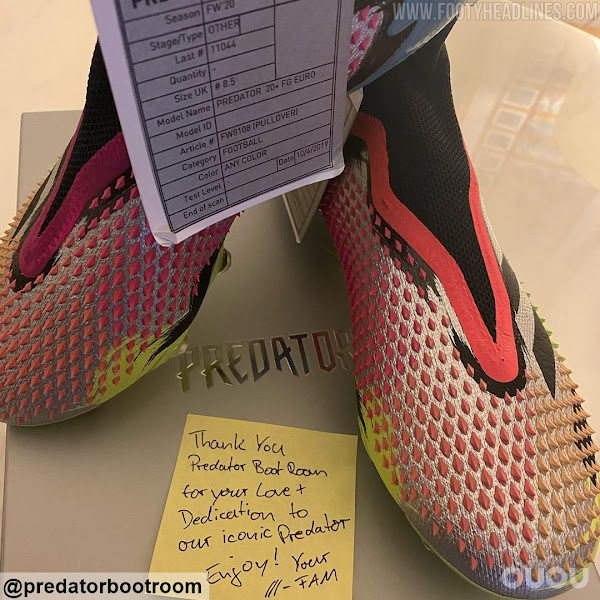 WWW.FOOTYHEADLINES.COM
Season FW 20
Stage/Type OTHER
Last # 11044
Quantity -
Size UK # 8.5
Model Name PREDATOR 20+ FG EURO
Model ID
Article # FW8108 (PULLOVER)
Category FOOTBALL
Color ANY COLOR Date 10/4/2019
Test Level
End of scan
PREDATOR
Thank You
Predator Boot Room
for your Love +
Dedication to
our iconic Predator
Enjoy! Your
///-FAM
@predatorbootroom